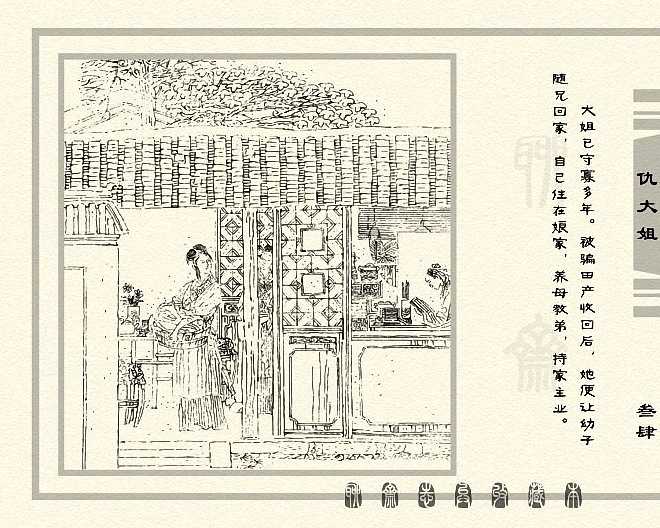 大姐已守寡多年。被骗田产收回后，她便让幼子
随兄回家，自己住在娘家，养母教弟，持家主业。
仇大姐
叁肆
聊斋志异收藏本
聊斋